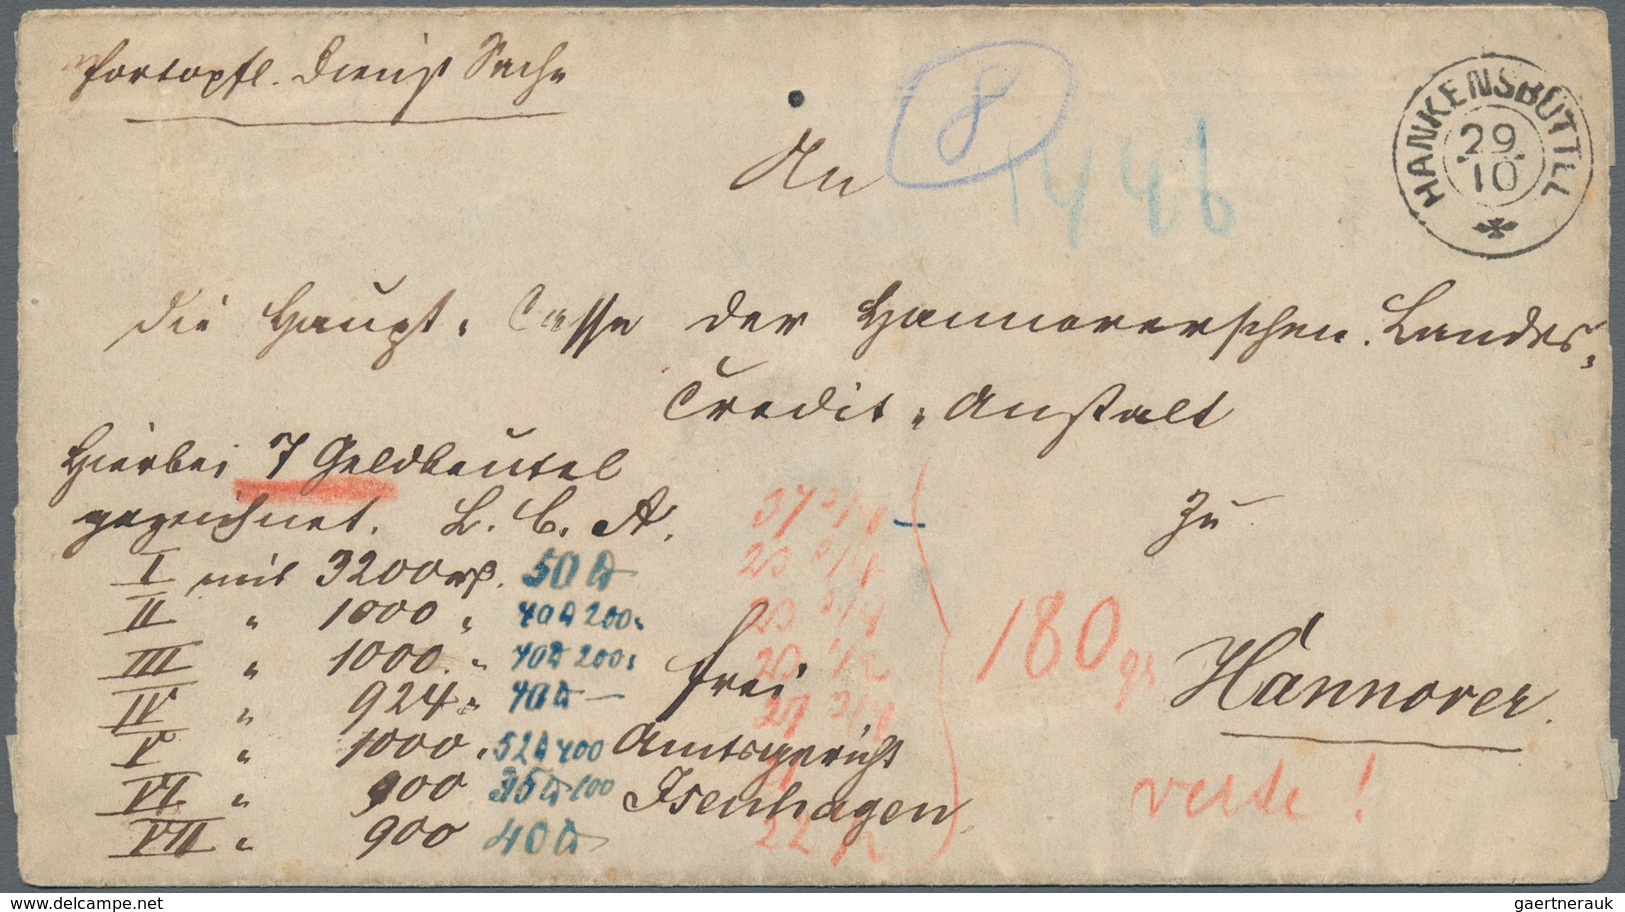 Portopfl. Dienst Sache
8
1446
HANKENSBÜTTEL
29
10
An
die Haupt-Casse der Hannoverschen Landes-
Credit-Anstalt
Hierbei 7 Geldbeutel
gezeichnet. L. C. A.
zu
37 3/4
I mit 3200 rß. 50 ₶
II " 1000 " 40 ₶ 200 "
III " 1000 " 40 ₶ 200 "
IV " 924 " 40 ₶ —
V " 1000 " 52 ₶ 400
VI " 900 35 ₶ 100
VII " 900 40 ₶
frei
Amtsgericht
Isenhagen
180 gs
Hannover.
verte !
www.delcampe.net
gaertnerauk